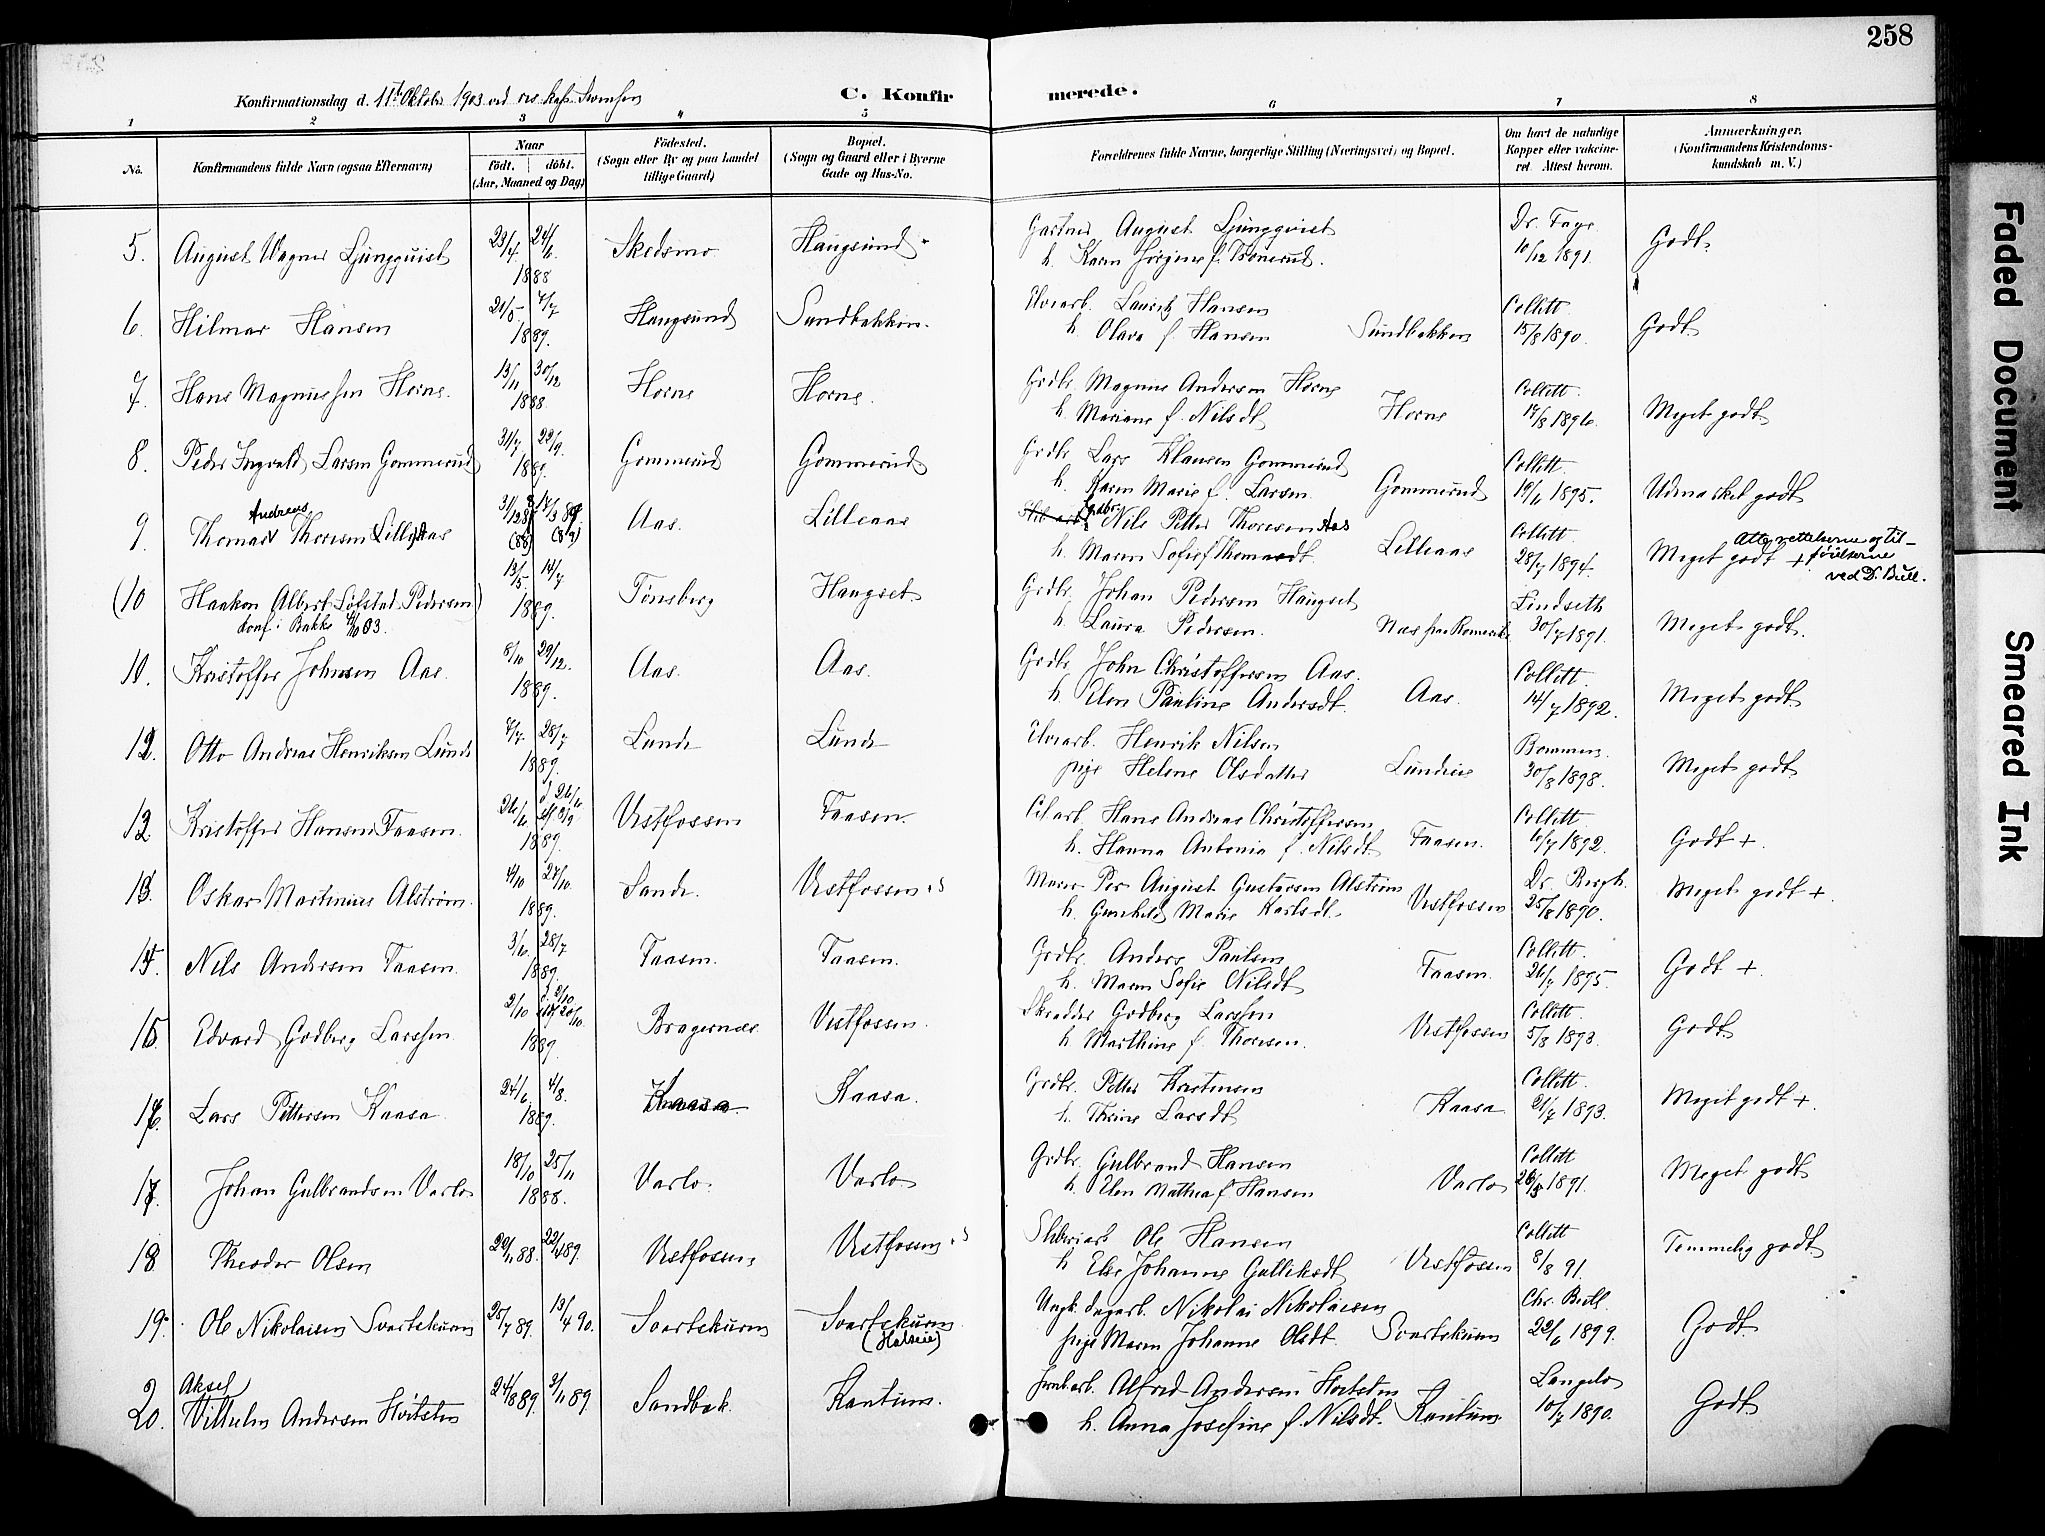 258
Konfirmationsdag d. 11te Oktober 1903 ved
C. Konfirmerede.
1 2 3 4 5 6 7 8
No.
Konfirmandens fulde Navn (ogsaa Efternavn)
Naar
födt. döbt.
(Aar, Maaned og Dag)
Födested.
(Sogn eller By og paa Landet
tillige Gaard)
Bopæl.
(Sogn og Gaard eller i Byerne
Gade og Hus-No.
Forældrenes fulde Navne, borgerlige Stilling (Næringsvei) og Bopæl.
Om havt de naturlige
Kopper eller vakcine-
ret. Attest herom.
Anmærkninger.
(Konfirmandens Kristendoms-
kundskab m. V.)
5. August Wagner Ljungquist 23/4 24/6 1888 Skedsmo Haugsund Gartner August Ljungqvist Dr. Faye 10/12 1891. Godt
h. Karen Jørgine f. Tronerud.
6. Hilmar Hansen 21/5 7/7 1889. Haugsund Sundbakken. Elvearb. Lauritz Hansen Collett 15/8 1890. Godt
h. Olava f. Hansen Sundbakken
7. Hans Magnussen Horne. 13/11 30/12 1888. Horne Horne. Grdbr. Magnus Andersen Horne Collett. 14/8 1896. Meget godt
h. Mariane f. Nilsdt Horne
8. Peder Ingvald Larsen Gommerud 31/7 22/9. 1889. Gommerud Gommerud Grdbr. Lars Klausen Gommerud Collett. 19/6 1895. Udmærket godt
h. Karen Marie f. Larsen Gommerud
9. Thomas Andreas Thoresen Lilleaas 31/12 88 17/3 89 (88) (89) Aas. Lilleaas Grdbr. Nils Petter Thoresen Aas Collett 28/7 1894. Meget godt +
h. Maren Sofie f Thomasdt. Lilleaas
Alle rettelserne og til-
føielserne
ved D. Bull.
(10 Haakon Albert Løfstad Pedersen) 13/5. 14/7 1889. Tønsberg Haugset Grdbr. Johan Pedersen Haugset Lindseth 30/7 1891. Meget godt.
konf. i Bakke 4/10 03. h. Laura Pedersen. Næs paa Romerike
11. Kristoffer Johnsen Aas. 8/10 29/12. 1889. Aas. Aas. Grdbr. John Christoffersen Aas. Collett. 14/7 1892. Meget godt
h. Elen Pauline Andersdt. Aas.
12. Otto Andreas Henriksen Lunde 7/7. 28/7 1889. Lunde Lunde Elvearb. Henrik Nilsen 30/8 1898. Meget godt
pige Helene Olsdatter Lundeie
12. Kristoffer Hansen Faasen. 26/6 1889. Vestfossen Faasen Hans Andreas Christoffersen Collett 6/7 1892. Godt +.
h. Hanna Antonia f. Nilsdt Faasen.
13. Oskar Martinius Alstrøm. 4/10 27/10. 1889. Sande. Vestfossen Murer Per August Gustavsen Alstrøm Dr. Bergh. 25/8 1890. Meget godt +.
h. Gunhild Marie Karlsdt. Vestfossen
14. Nils Andersen Faasen. 3/6. 28/7 1889 Faasen. Faasen. Grdbr. Anders Paulsen Collett. 26/7 1895. Godt +.
h. Maren Sofie Nilsdt Faasen.
15. Edvard Godberg Larssen 2/10 1889. Bragernæs Vestfossen. Skrædder Godberg Larssen Collett. 5/8 1893. Godt
h. Marthine f. Thoresen. Vestfossen
16. Lars Pettersen Kaasa 24/6. 4/8. 1889. Kaasa Kaasa. Grdbr. Petter Kristensen Collett. 21/7 1893. Meget godt +.
h. Thrine Larsdt Kaasa
17. Johan Gulbrandsen Varlo 18/10 25/11 1888. Varlo. Varlo Grdbr. Gulbrand Hansen Collett 26/8 1891. Meget godt
h. Elen Mathea f. Hansen Varlo
18 Theodor Olsen 88. 22/4 89. Vestfossen Vestfossen Ole Hansen Collett 8/8 91. Temmelig godt
h Else Johanne Gulliksdt Vestfossen
19. Ole Nikolaisen Svartskuren 25/7 89. 13/4 90. Svartskuren Svartskuren Ungk. dagarb. Nikolai Nikolaisen Chr. Bull. 22/6 1899. Godt.
(Halseie) pige Maren Johanne Olsdt. Svartskuren
20. Aksel Vilhelm Andersen Hvitsten 24/8 89. 3/11 89 Sandbak. Kantum. Jernbarb. Alfred Andersen Hvitsten Langelo 10/7 1890. Godt
h. Anna Josefine f. Nilsdt. Kantum
Faded Document
Smeared Ink